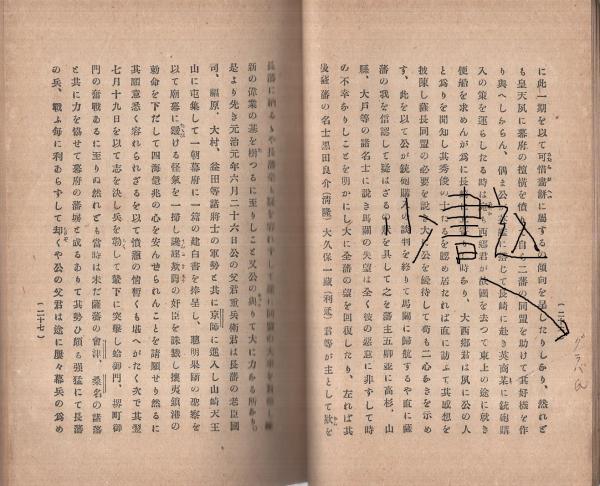 に此一期を以て可惜畵餅に屬するの傾向を呈したりしなり、然れど
も皇天夙に幕府の擅橫を憤り自ら二藩の同盟を助けて其好機を作
り與へしならん、偶ま公が
に應じて長崎に赴き英商某に銃砲購
入の策を運らしたる時は
も西郷君が故國を去つて東上の途に就き
便船を求めんが為に長
時なり、大西郷君は夙に公の人
と為りを聞知し其秀俊の士たるを認め居たれば直に訪ふて其感想を
披陳し薩長同盟の必要を説き大に公を優待して苟も二心なきを示め
す、此を以て公が銃砲購入の談判を終りて馬關に歸航するや直に薩
藩の我を信認して疑はざるの狀を具して之を藩主五卿並に高杉、山
縣、大戶等の諸名士に説き馬關の失望は全く彼の惡意に非すして時
の不幸なりしことを明かにし大に全藩の望を回復したり、左れば其
後薩藩の名士黑田良介(清隆)大久保一藏(利通)君等が主として欵を
長藩に納るゝや長藩
新の偉業の基を樹つるに至りしこと又公の與りて大に力ある所なり。
是より先き元治元年六月二十六日公の父君重兵衞君は長藩の老臣國
司、福原、大村、益田等諸將士の軍勢と共に京師に進入し山崎天王
山に屯集して一朝幕府に一篇の建白書を捧呈し、聰明果斷の聖察を
以て廟幕に靉ける怪氣を一掃し讒誣欺罔の奸臣を誅戮し攘夷鎖港の
勅命を下だして四海億兆の心を安んせられんことを請願せり然るに
其願意悉く容れられざるを以て憤懣の情暫くも堪へがたく次で其翌
七月十九日を以て志を決し兵を勒して輦下に突擊し蛤御門、堺町御
門の奮戰あるに至りぬ然れども當時は未だ薩藩の會津、桑名の諸藩
と共に力を恊せて幕府の藩屛と成るありて其勢ひ頗る强猛にて長藩
の兵、戰ふ每に利あらずして却くや公の父君は遂に屢々幕兵の為め
(二十七)
グラバ氏